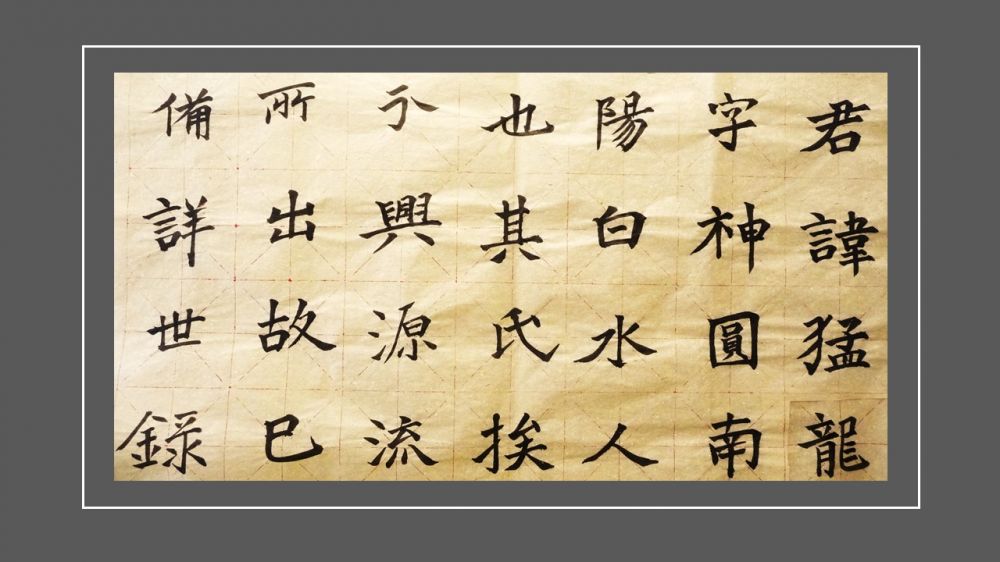 君諱猛龍
字神圓南
陽白水人
也其氏挨
分興源流
所出故巳
備詳世錄